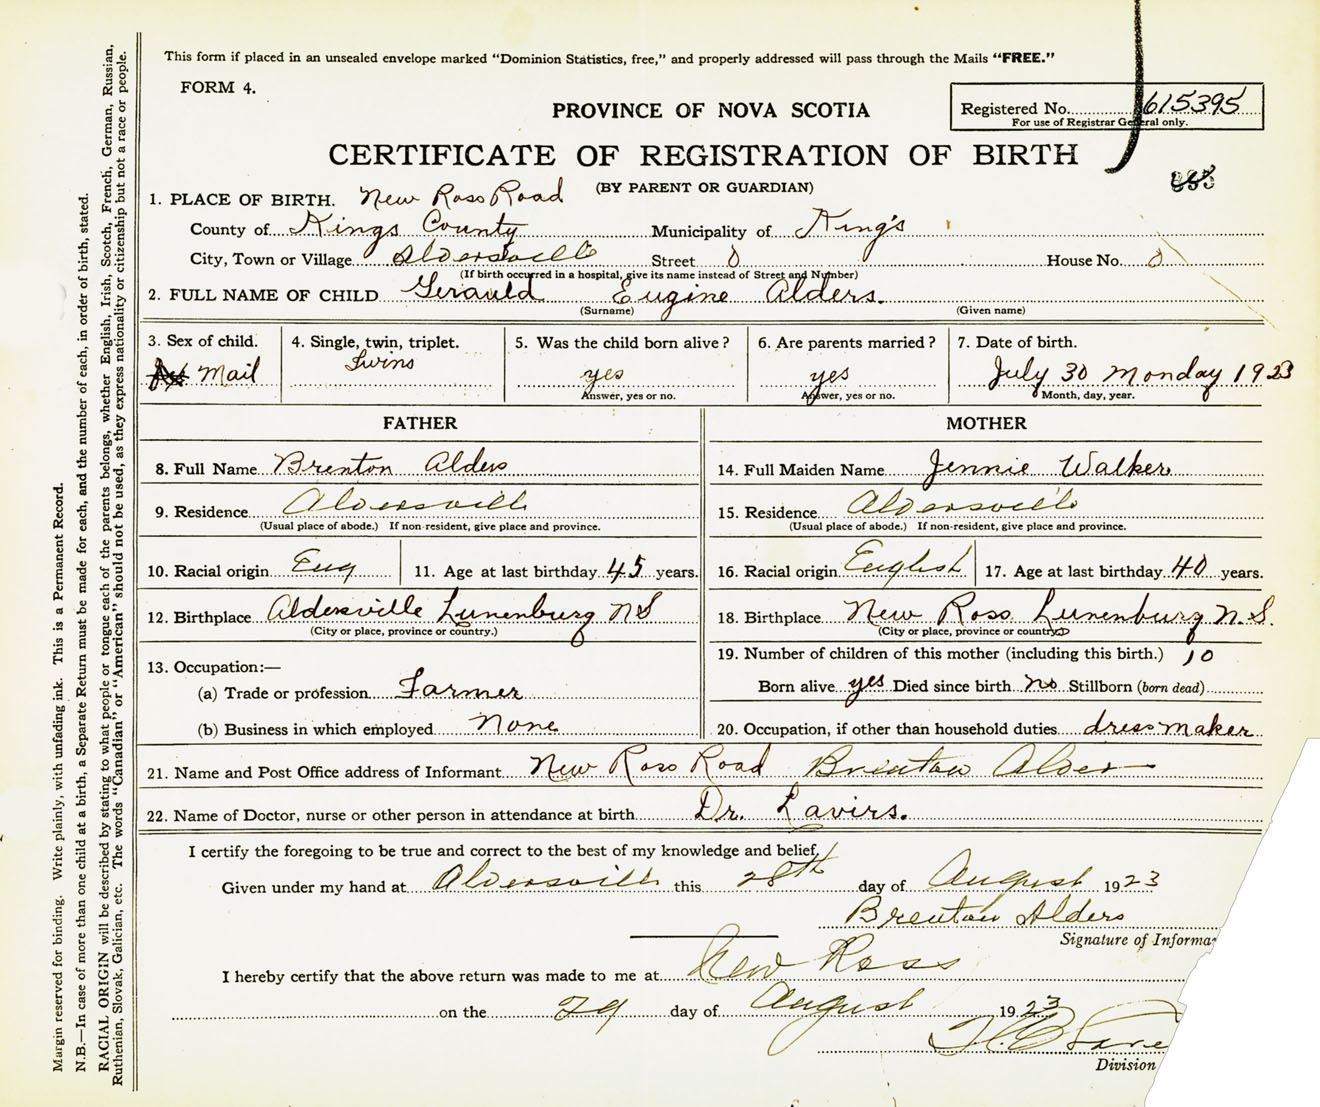 This form if placed in an unsealed envelope marked “Dominion Statistics, free,” and properly addressed will pass through the Mails “FREE.”
FORM 4.
PROVINCE OF NOVA SCOTIA
Registered No. 615395
For use of Registrar General only.
CERTIFICATE OF REGISTRATION OF BIRTH
(BY PARENT OR GUARDIAN)
1. PLACE OF BIRTH. New Ross Road
County of Kings County Municipality of King's
City, Town or Village Aldersville Street 0 House No. 0
(If birth occurred in a hospital, give its name instead of Street and Number)
2. FULL NAME OF CHILD Gerauld Eugine Alders.
(Surname) (Given name)
3. Sex of child. 4. Single, twin, triplet. 5. Was the child born alive? 6. Are parents married? 7. Date of birth.
Mail Twins yes yes July 30 Monday 1923
Answer, yes or no. Answer, yes or no. Month, day, year.
FATHER MOTHER
8. Full Name Brenton Alders 14. Full Maiden Name Jennie Walker
9. Residence Aldersville 15. Residence Aldersville
(Usual place of abode.) If non-resident, give place and province. (Usual place of abode.) If non-resident, give place and province.
10. Racial origin Eng 11. Age at last birthday 45 years. 16. Racial origin English 17. Age at last birthday 40 years.
12. Birthplace Aldersville Lunenburg N S 18. Birthplace New Ross Lunenburg N. S.
(City or place, province or country.) (City or place, province or country)
13. Occupation:— 19. Number of children of this mother (including this birth.) 10
(a) Trade or profession Farmer Born alive yes Died since birth no Stillborn (born dead)
(b) Business in which employed None 20. Occupation, if other than household duties dress maker
21. Name and Post Office address of Informant New Ross Road Brenton Alder
22. Name of Doctor, nurse or other person in attendance at birth Dr. Lavirs.
I certify the foregoing to be true and correct to the best of my knowledge and belief,
Given under my hand at Aldersville this 28th day of August 1923
Brenton Alders
Signature of Informa
I hereby certify that the above return was made to me at New Ross
on the 29 day of August 1923
Division
Margin reserved for binding. Write plainly, with unfading ink. This is a Permanent Record.
N.B.—In case of more than one child at a birth, a Separate Return must be made for each, and the number of each, in order of birth, stated.
RACIAL ORIGIN will be described by stating to what people or tongue each of the parents belongs, whether English, Irish, Scotch, French, German, Russian,
Ruthenian, Slovak, Galician, etc. The words “Canadian” or “American” should not be used, as they express nationality or citizenship but not a race or people.